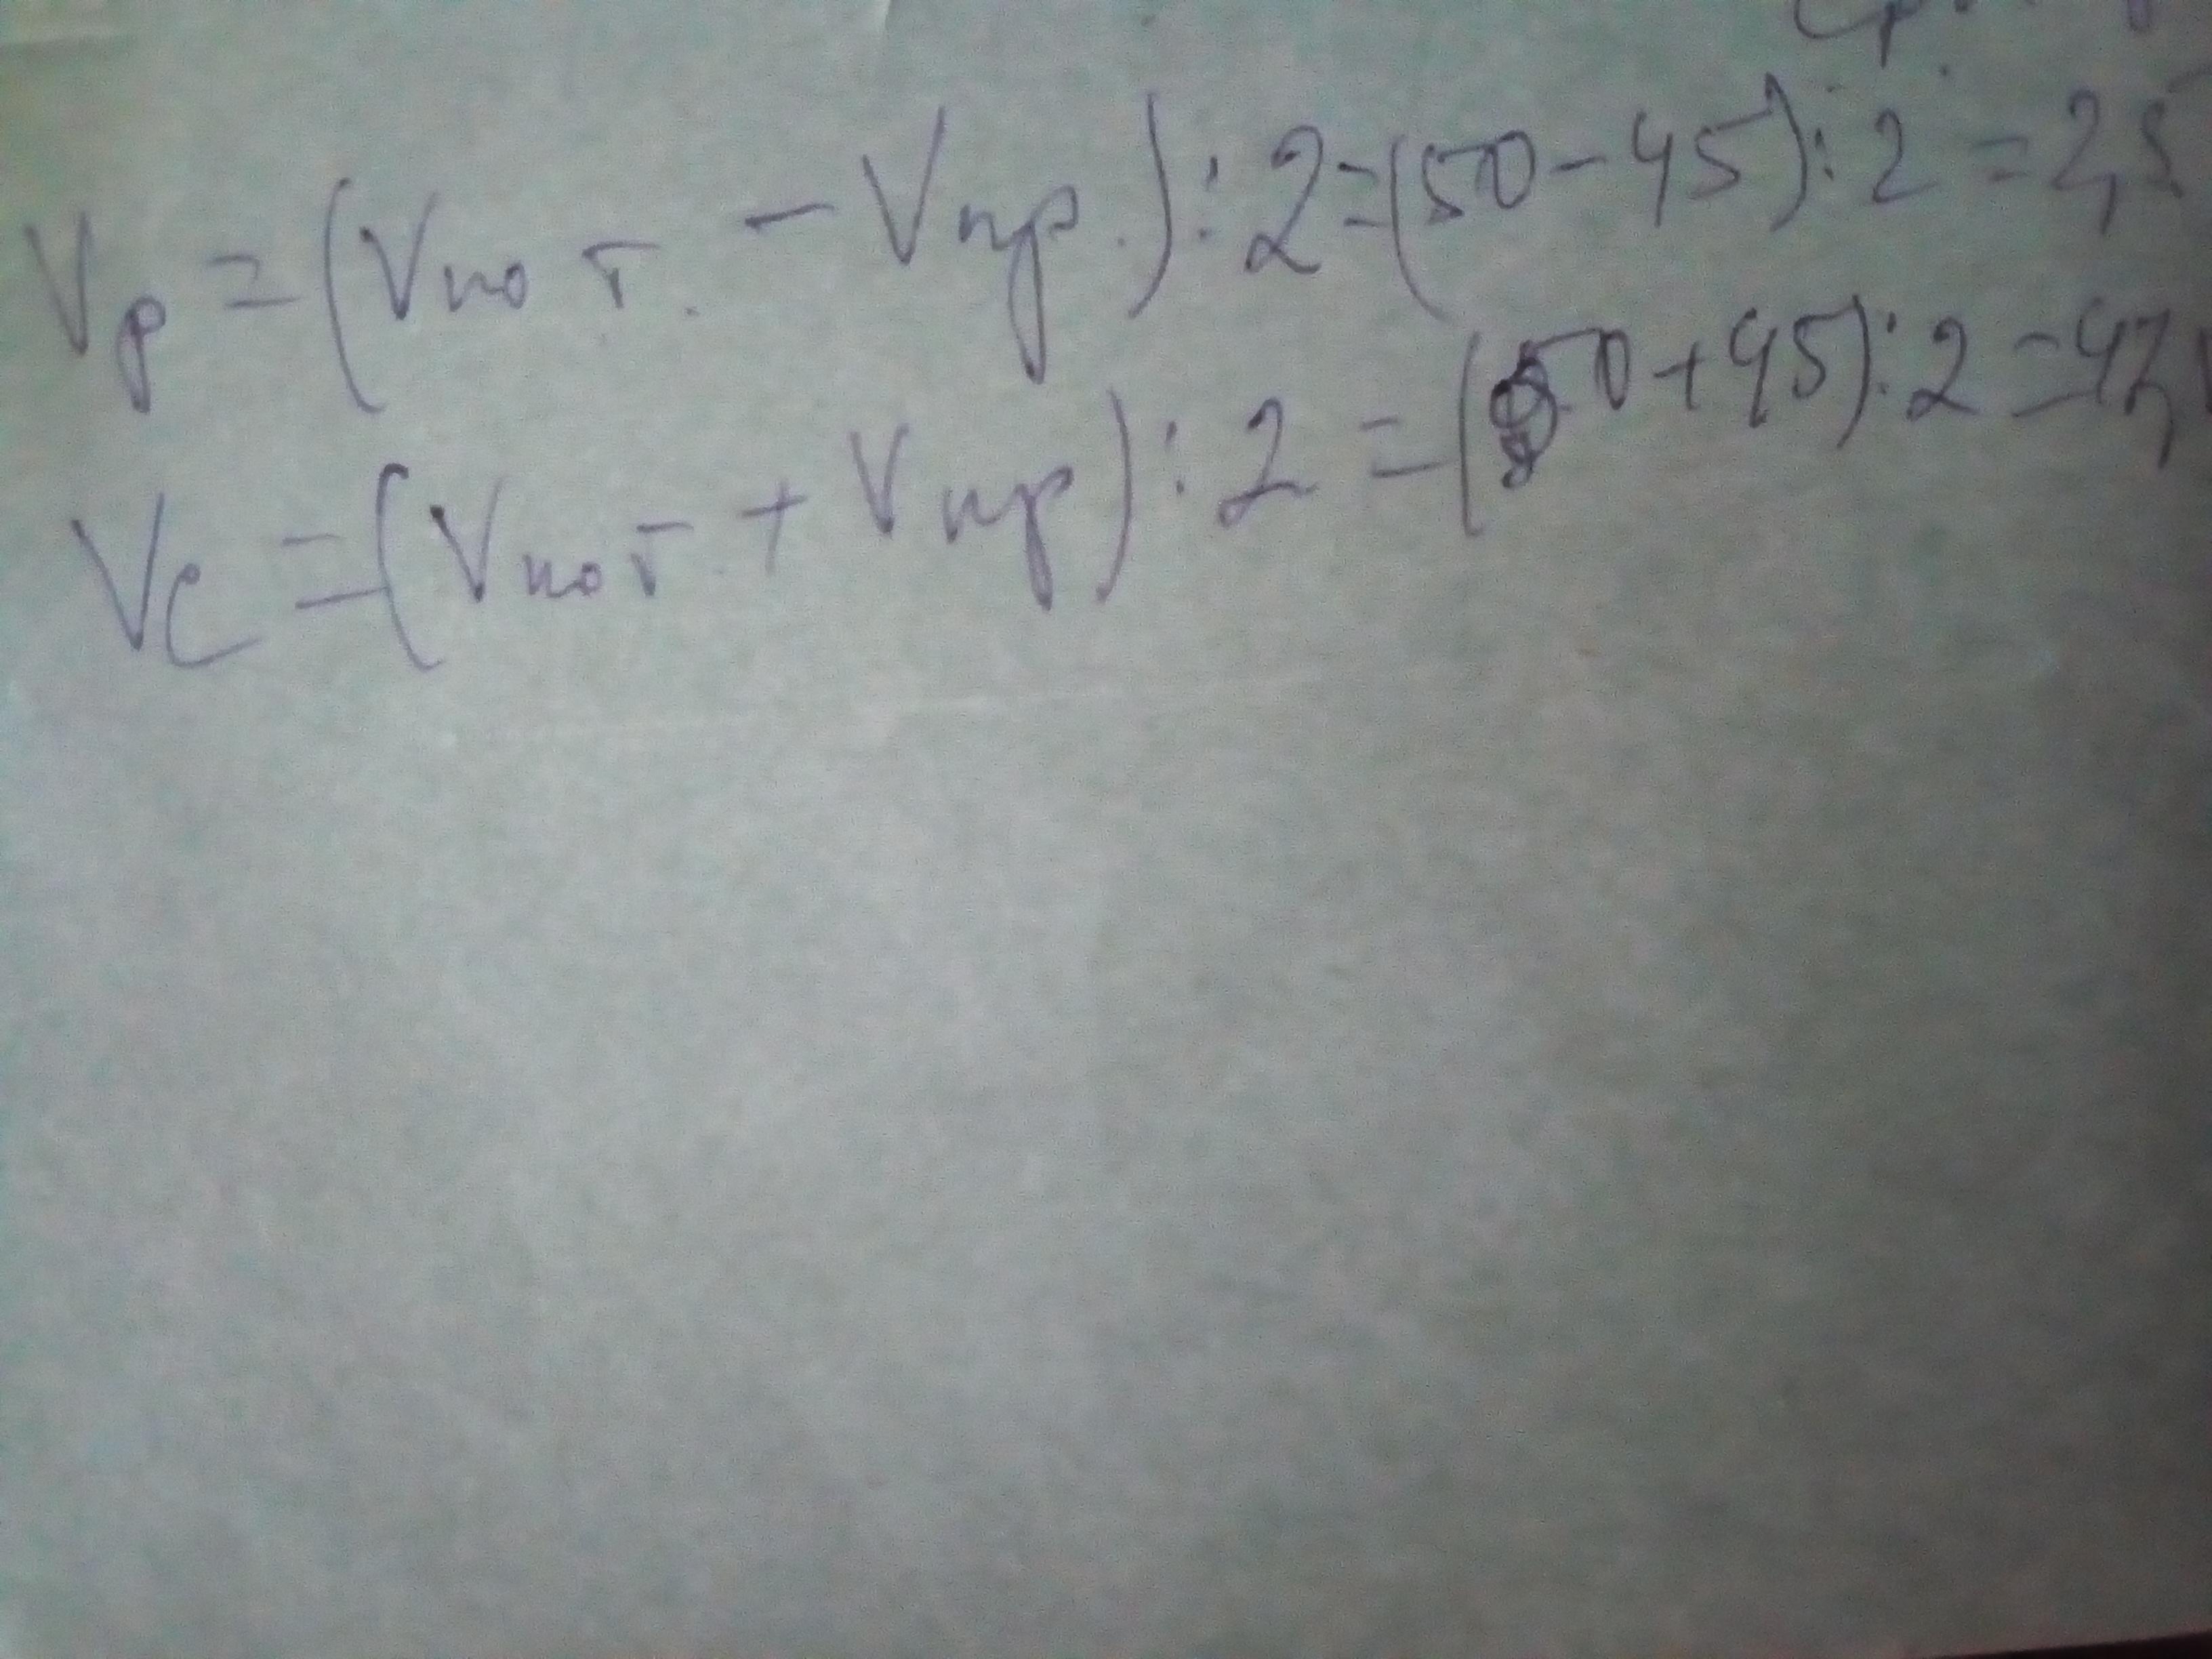 Vр = (Vпот. - Vпр.) : 2 = (50 - 45) : 2 = 2,5
Vс = (Vпот + Vпр) : 2 = (50 + 45) : 2 = 47,